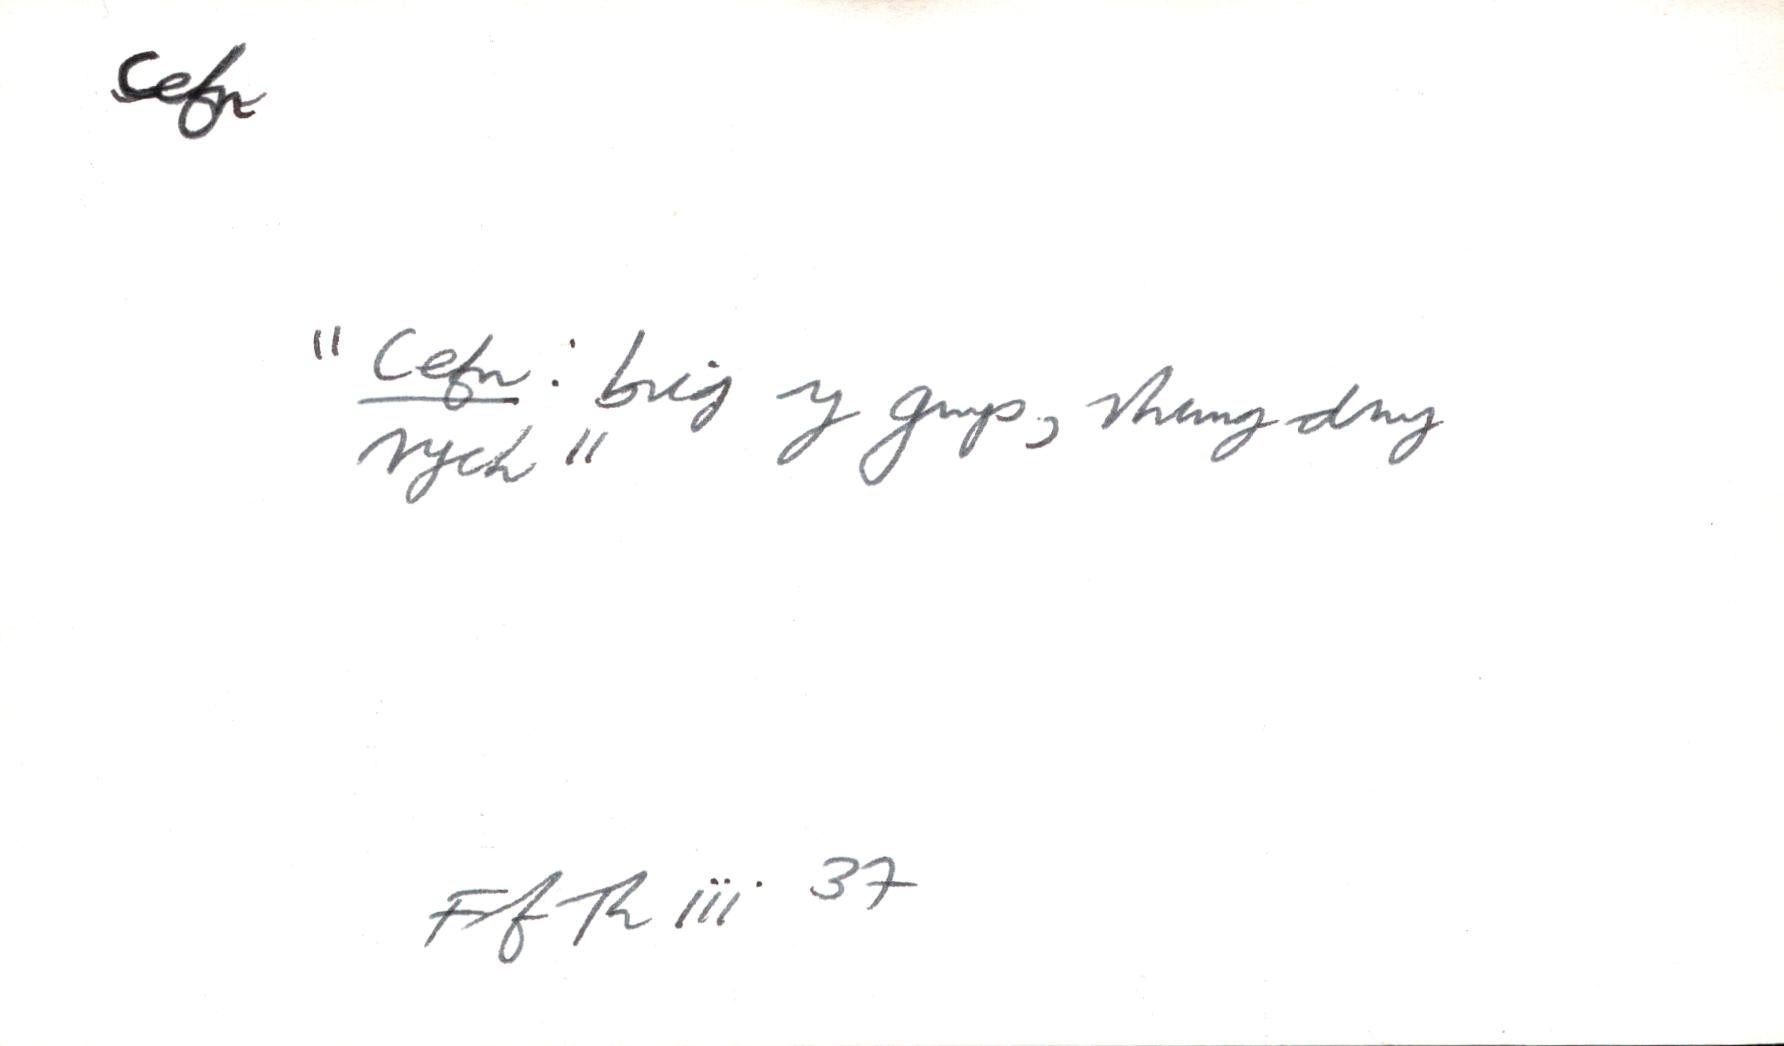 Cefn
"Cefn: brig y grwp, rhwng dwy
rych"
Ff Th iii. 37